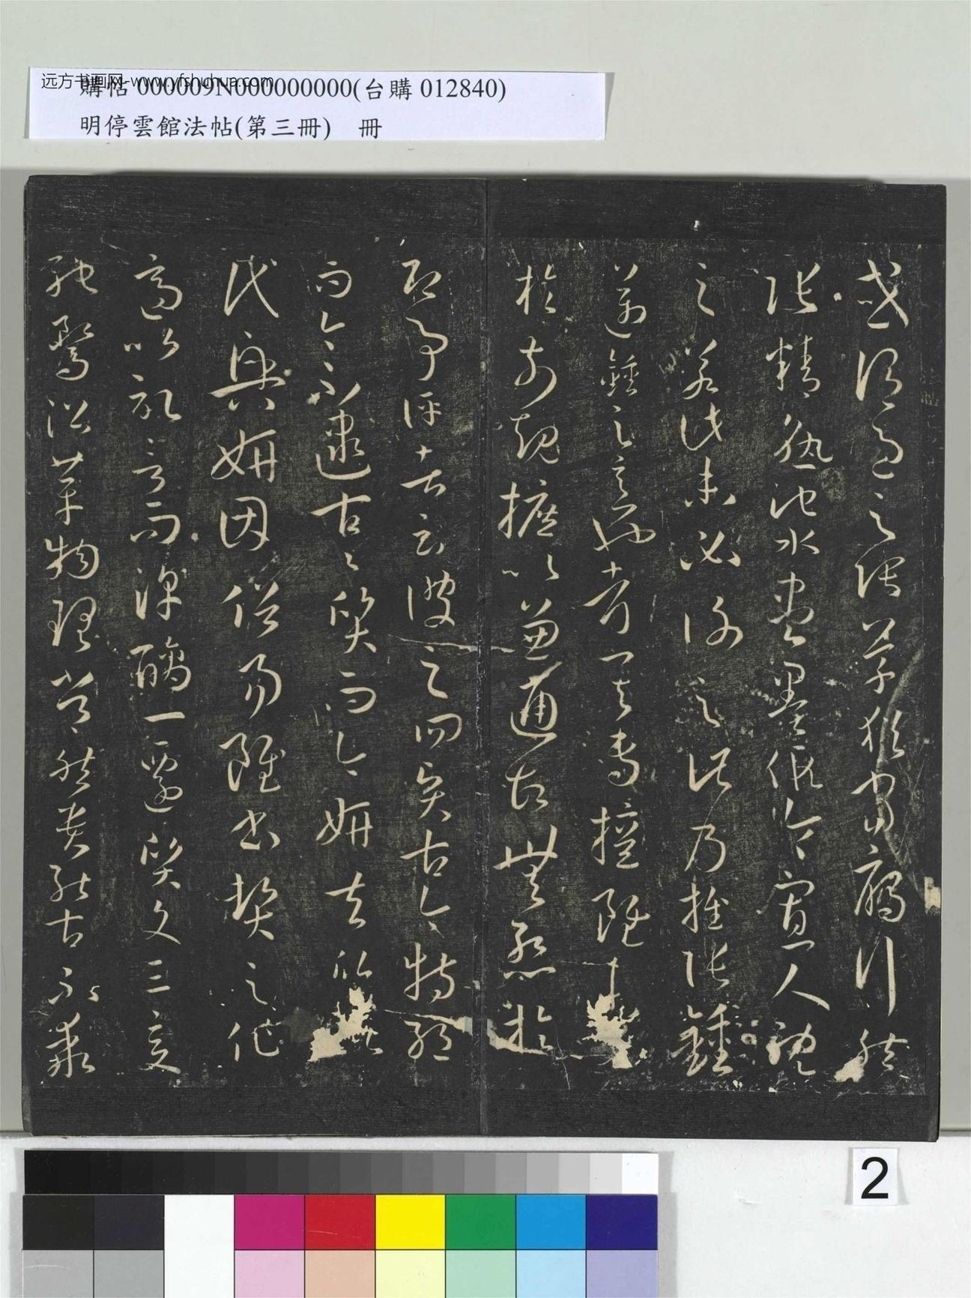 远方书画网-www.yfshuhua.com
購帖 000009N000000000(台購 012840)
明停雲館法帖(第三冊) 冊
或謂過之張草猶當鴈行然
張精熟池水盡墨假令寡人耽
之若此未必謝之此乃推張鍾
邁鍾之意也考其專擅雖未
於前規摭以兼通故無慙於
即事評者云彼之四賢古今特絕
而今不逮古〻質而今妍夫質
代興妍因俗易雖書契之作
適以記言而淳醨一遷質文三變
馳騖沿革物理常然貴能古不乖
2